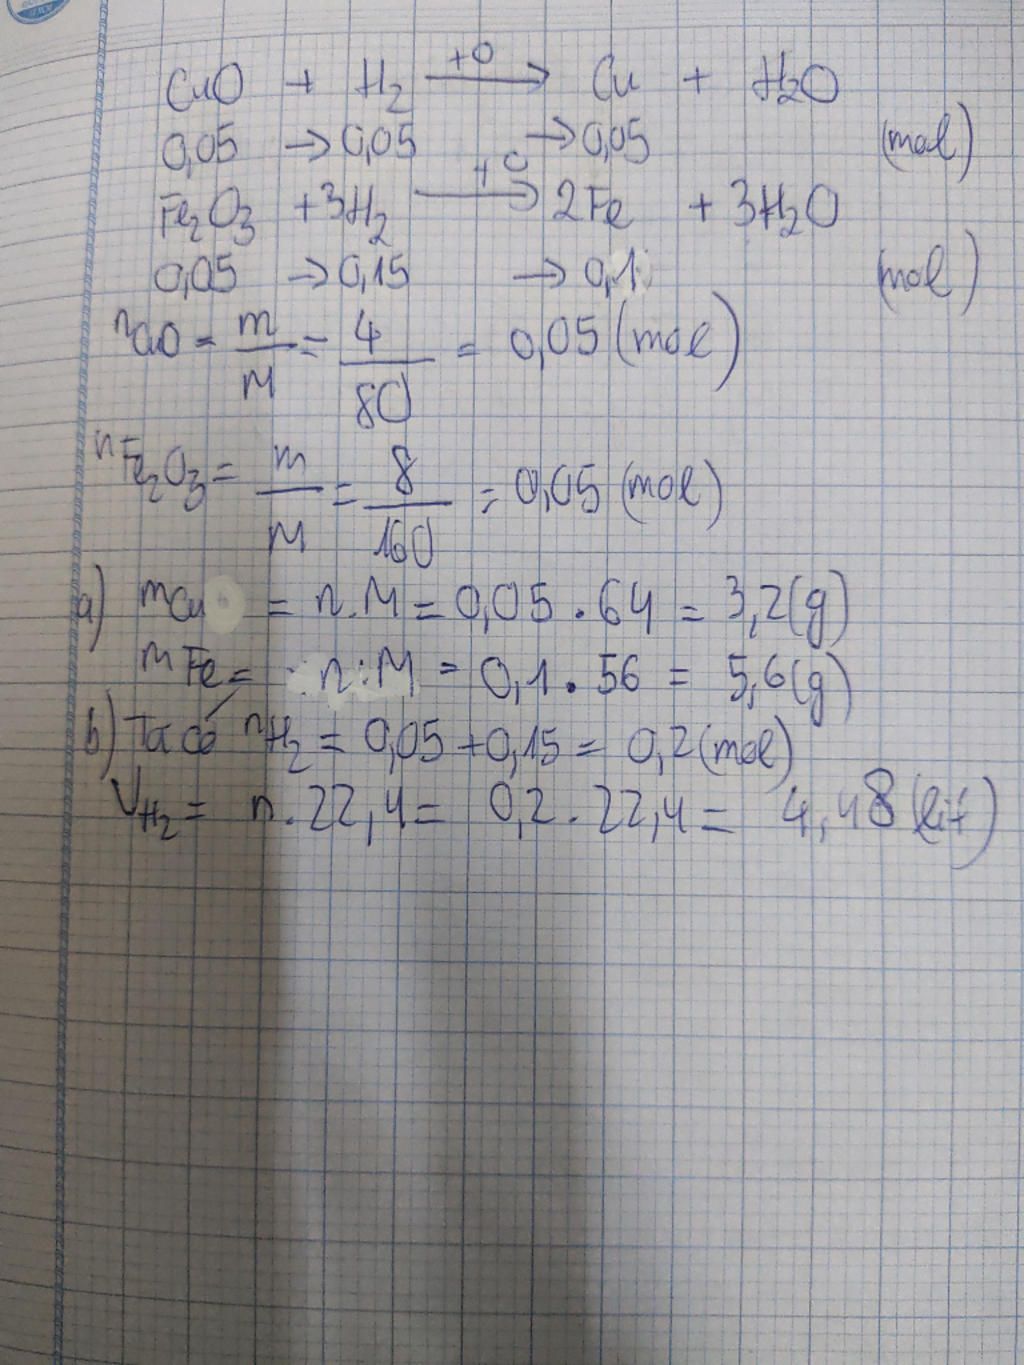 CuO + H2 +O → Cu + H2O
0,05 → 0,05 → 0,05 (mol)
Fe2O3 + 3H2 +O → 2Fe + 3H2O
0,05 → 0,15 → 0,1 (mol)
nCuO = m/M = 4/80 = 0,05 (mol)
nFe2O3 = m/M = 8/160 = 0,05 (mol)
a) mCu = n.M = 0,05 . 64 = 3,2(g)
mFe = n.M = 0,1 . 56 = 5,6(g)
b) Ta có nH2 = 0,05 + 0,15 = 0,2(mol)
VH2 = n.22,4 = 0,2.22,4 = 4,48(lit)